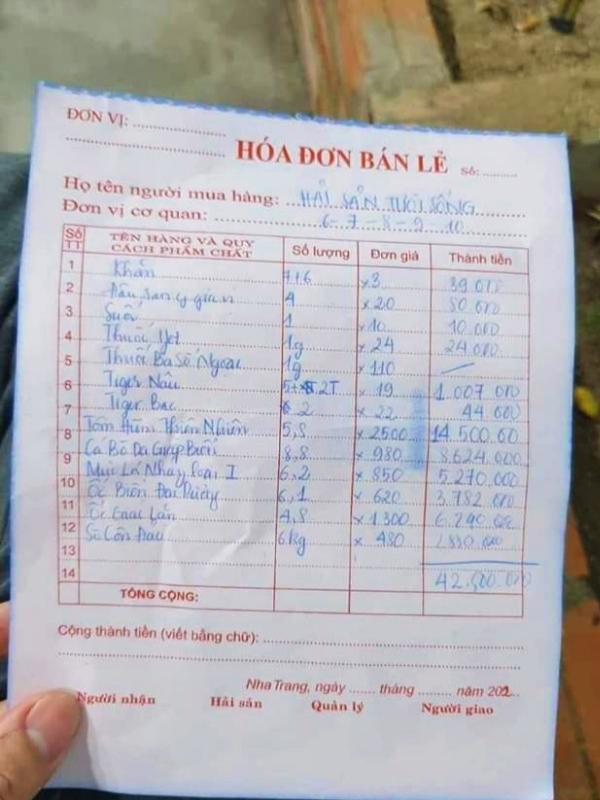 ĐƠN VỊ: ....................
HÓA ĐƠN BÁN LẺ Số: ..........
Họ tên người mua hàng: HẢI SẢN TƯƠI SỐNG
Đơn vị cơ quan: 6-7-8-9-10
Số TT TÊN HÀNG VÀ QUY CÁCH PHẨM CHẤT Số lượng Đơn giá Thành tiền
1 Khăn 7+6 x3 39.000
2 4 x20 80.000
3 Suối 1 x10 10.000
4 Thuốc 1g x24 24.000
5 Thuốc Ba Số Ngoại 1g x110
6 Tiger Nâu x19 1.007.000
7 Tiger Bạc 2 x22 44.000
8 Tôm Hùm Thiên Nhiên 5,8 x2500 14.500.00
9 Cá Bò Da Giáp Biển 8,8 x980 8.624.000
10 Mực Lá Nháy Loại I 6,2 x850 5.270.000
11 Ốc Biển Đại Dương 6,1 x620 3.782.000
12 Ốc 4,8 x1300 6.290.000
13 Sò Côn Đảo 6kg x480
14 42.500.000
TỔNG CỘNG:
Cộng thành tiền (viết bằng chữ): ....................
Nha Trang, ngày ....... tháng ......... năm 202..
Người nhận Hải sản Quản lý Người giao